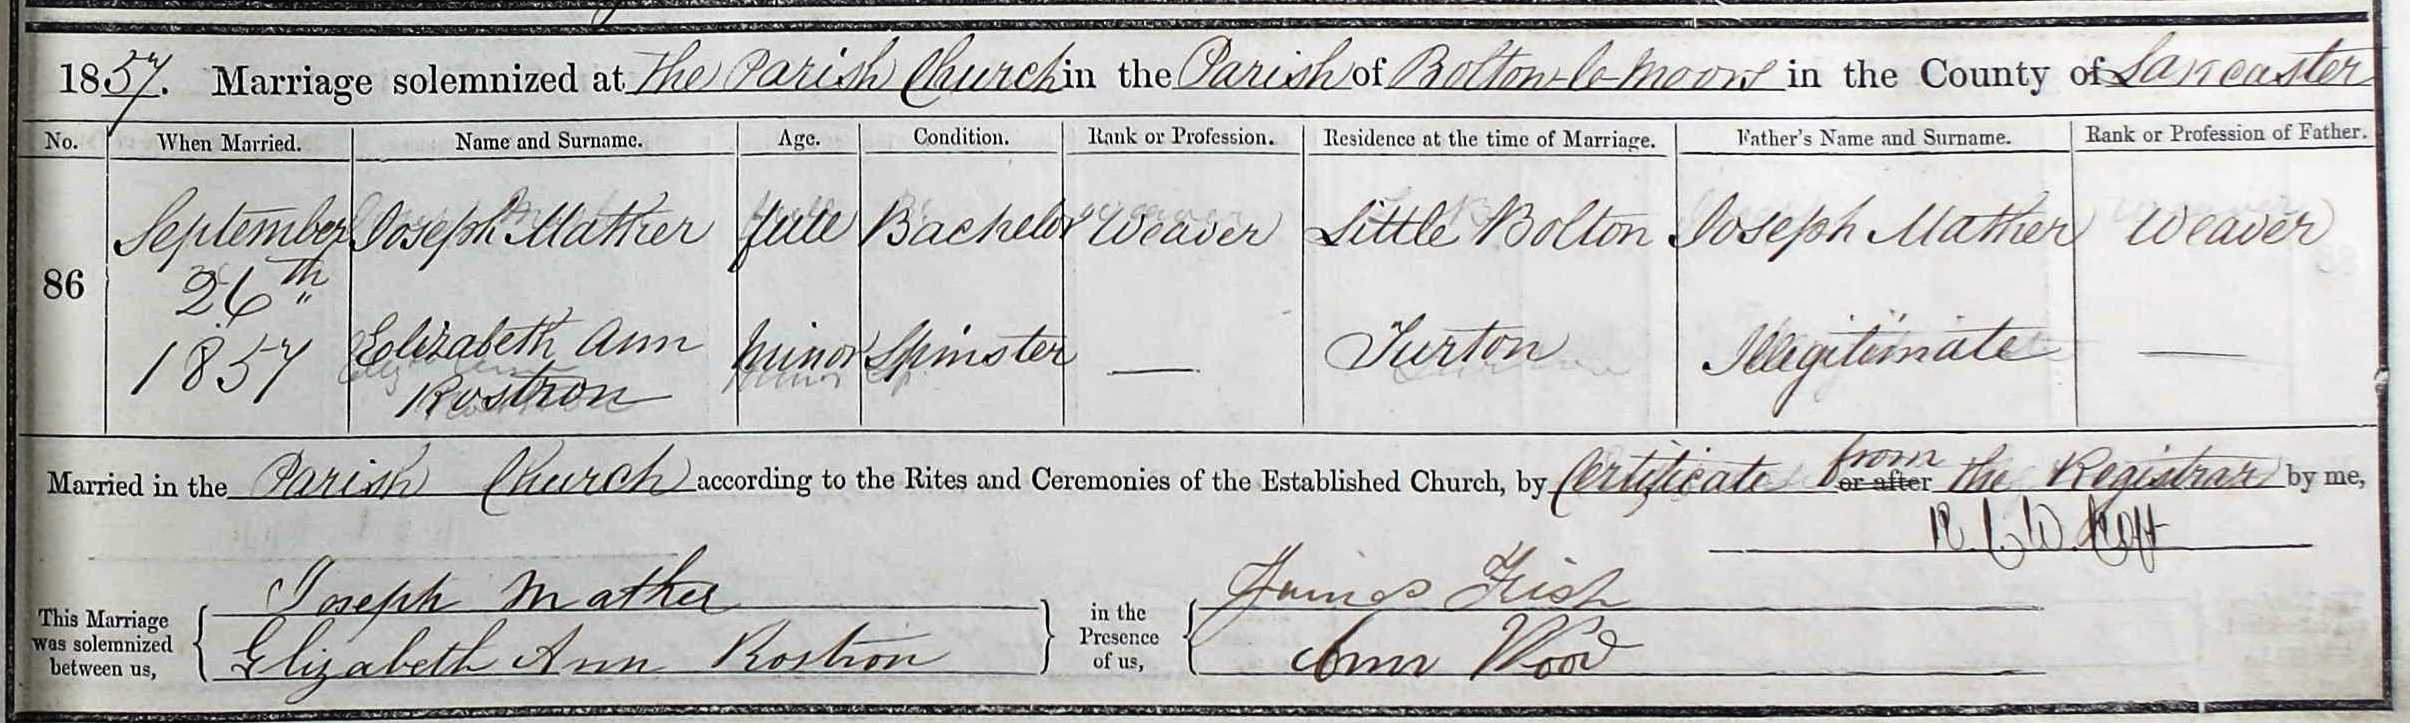 1857. Marriage solemnized at The Parish Church in the Parish of Bolton-le-Moors in the County of Lancaster
No. When Married. Name and Surname. Age. Condition. Rank or Profession. Residence at the time of Marriage. Father's Name and Surname. Rank or Profession of Father.
September Joseph Mather full Bachelor Weaver Little Bolton Joseph Mather Weaver
86 26th
1857 Elizabeth Ann minor Spinster — Turton Illegitimate —
Rostron
Married in the Parish Church according to the Rites and Ceremonies of the Established Church, by Certificate from or after the Registrar by me,
This Marriage was solemnized between us,
Joseph Mather
Elizabeth Ann Rostron
in the Presence of us,
James Fish
Ann Wood